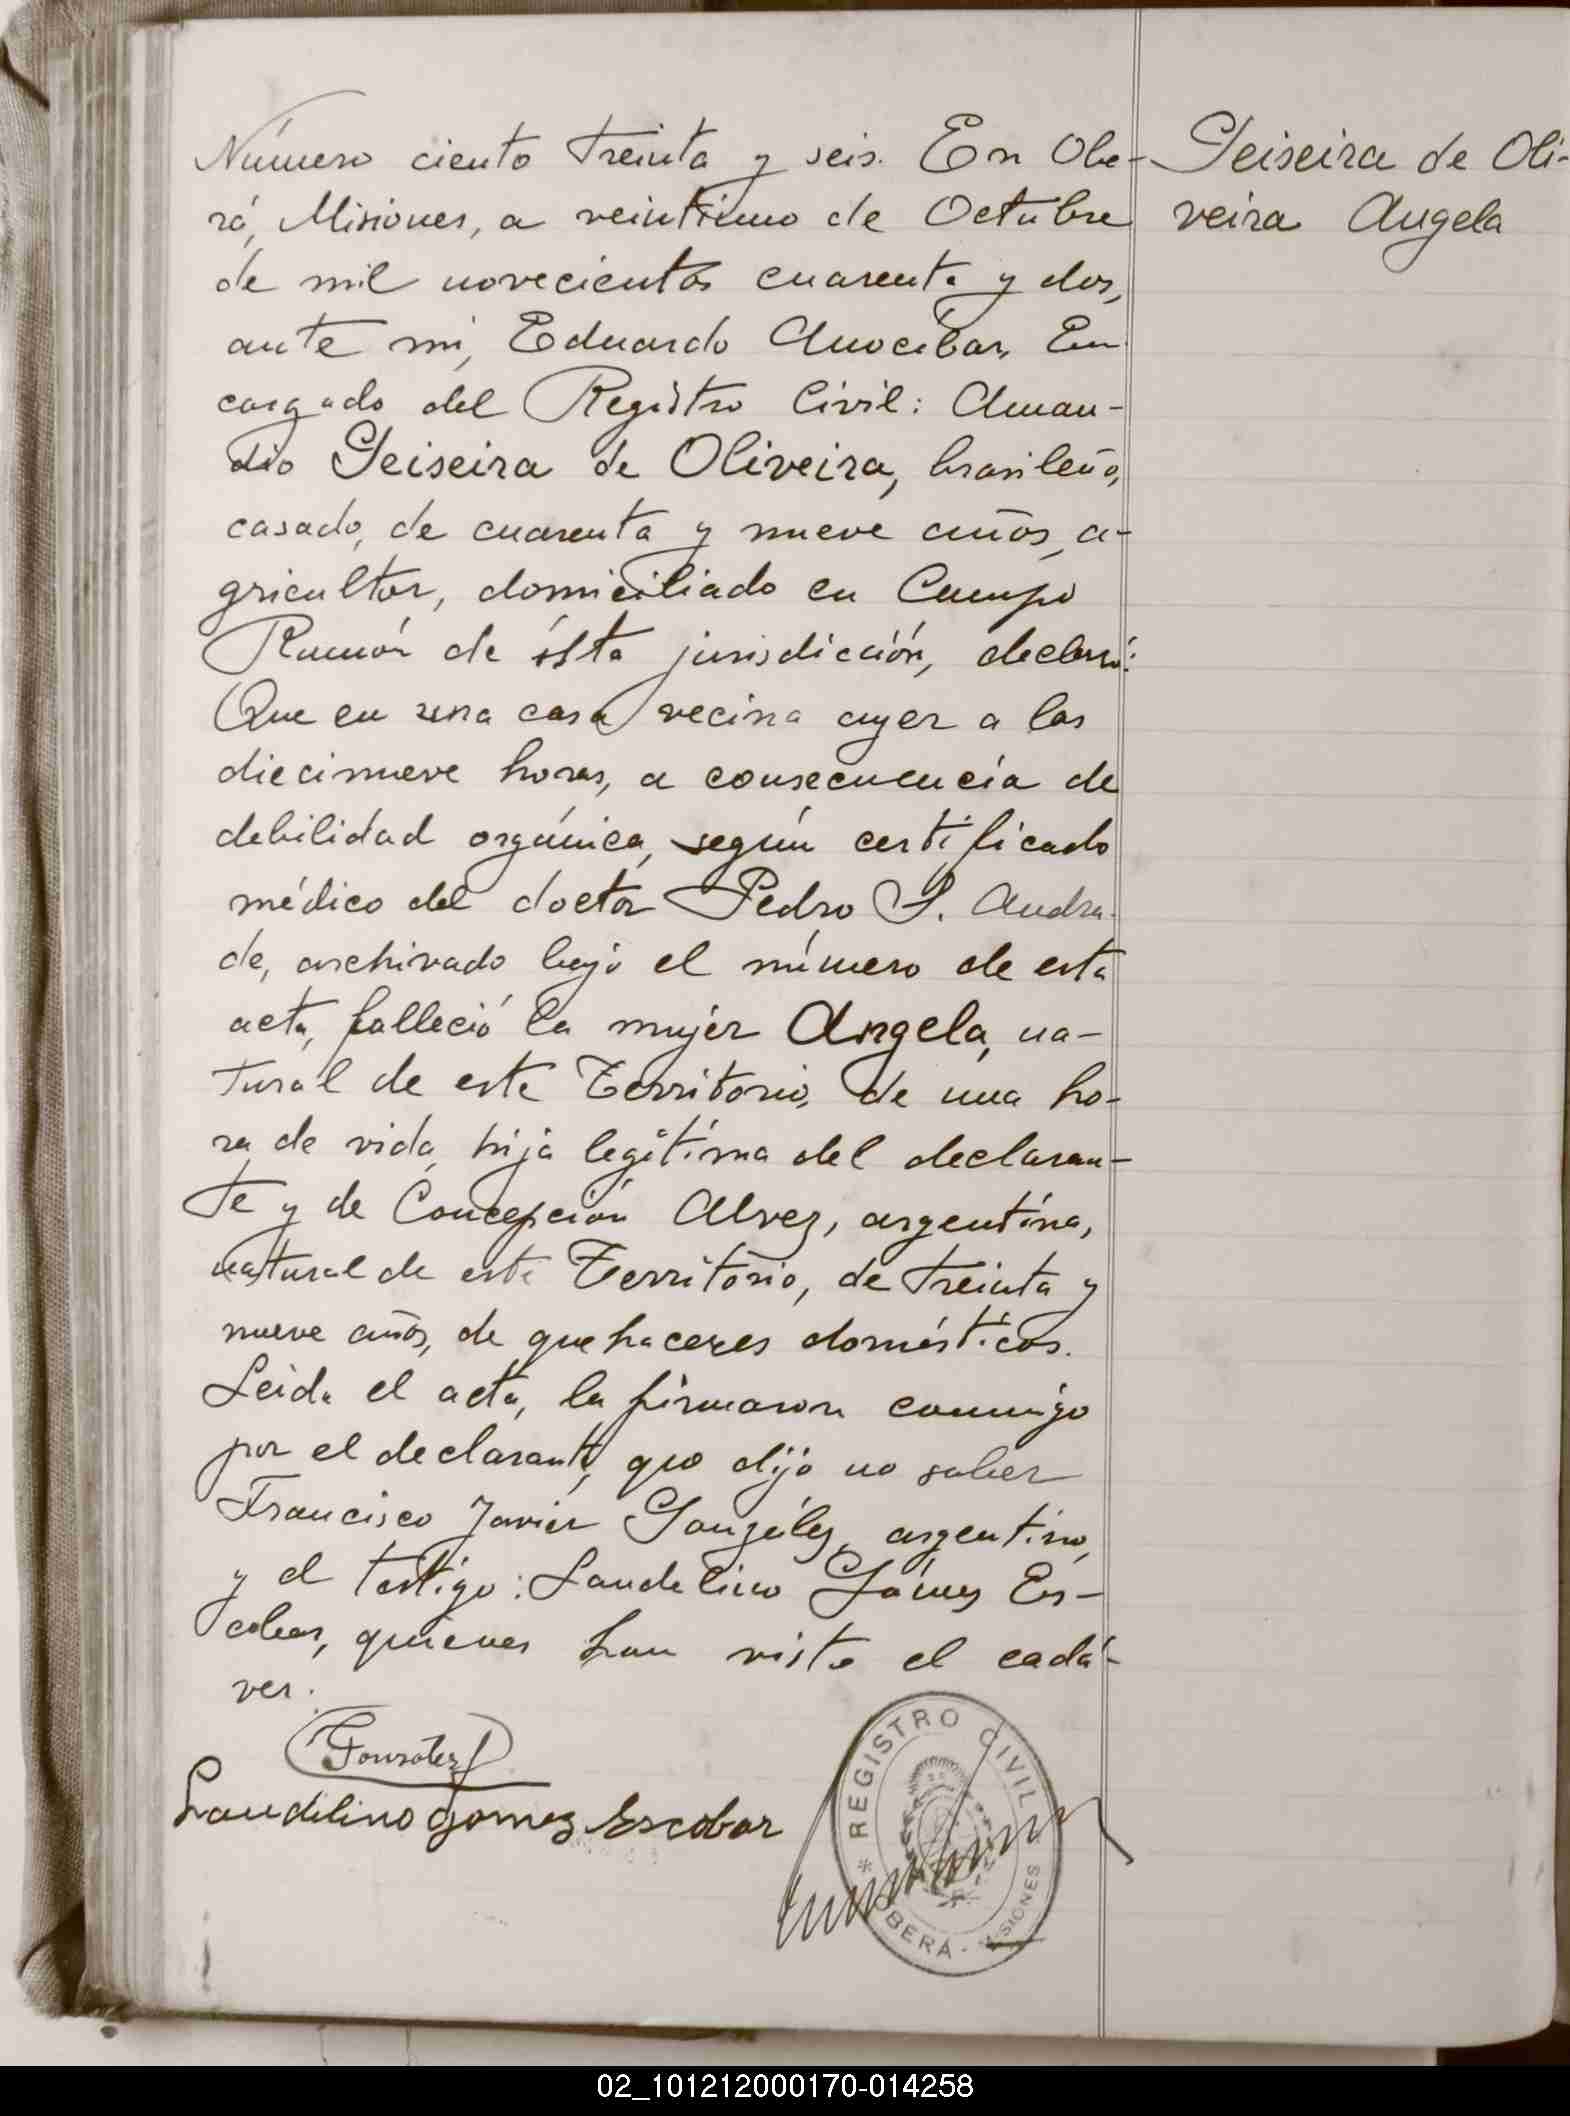 Número ciento treinta y seis. En Obe-
rá, Misiones, a veintiuno de Octubre
de mil novecientos cuarenta y dos,
ante mi, Eduardo Anocibar, En
cargado del Registro Civil: Aman-
dio Teiseira de Oliveira, brasileño,
casado, de cuarenta y nueve años, a-
gricultor, domiciliado en Campo
Ramón de ésta jurisdicción, declaró:
Que en una casa vecina ayer a las
diecinueve horas, a consecuencia de
debilidad orgánica, según certificado
médico del doctor Pedro S. Andra-
de, archivado bajo el número de esta
acta, falleció la mujer Angela, na-
tural de este Territorio, de una ho-
ra de vida, hija legítima del declaran-
te y de Concepción Alvez, argentina,
natural de este Territorio, de treinta y
nueve años, de quehaceres domésticos.
Leida el acta, la firmaron conmigo
por el declarante, que dijo no saber
Francisco Javier González, argentino,
y el testigo: Laudelino Gómez Es-
cobar, quienes han visto el cadá-
ver.
González
Laudilino gomez Escobar
Teiseira de Oli-
veira Angela
* REGISTRO CIVIL *
OBERÁ - MISIONES
02_101212000170-014258